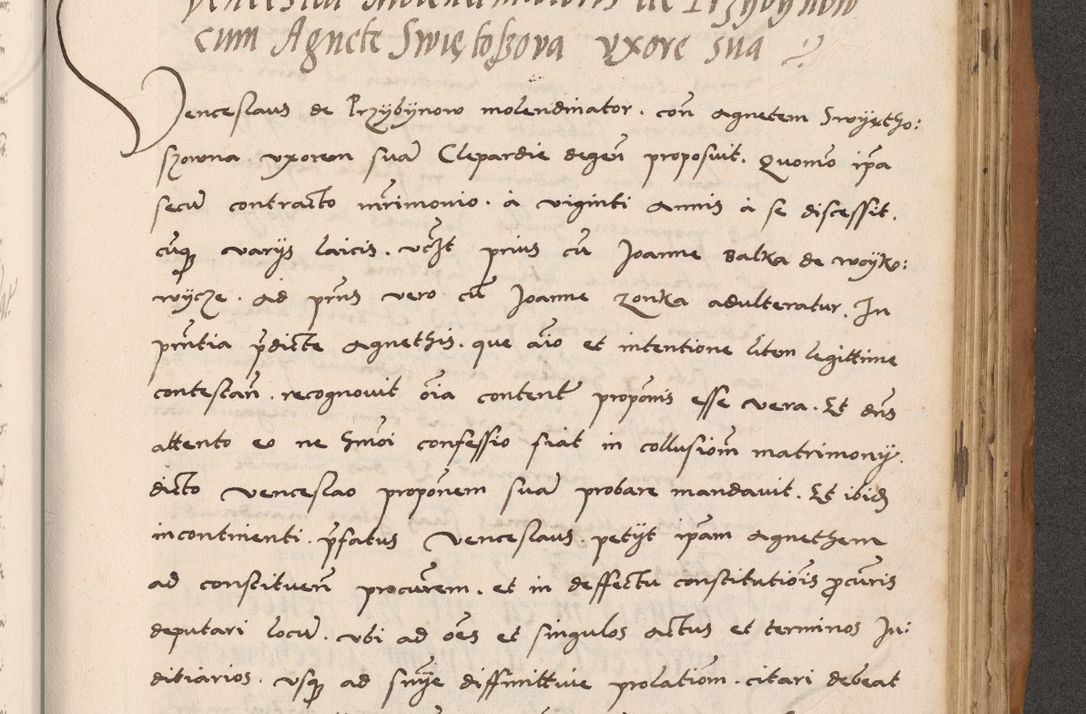 Venceslai Molendinatoris de Przybynow
cum Agnete Swiętoszova uxore sua
Venceslaus de Przybynow molendinator . con Agnetem Swyętho:
szowna . uxorem suā Clepardie degeñ proposuit . Quomo ipa
secū contracto mrimonio . à viginti Annis à se discessit .
cūq varijs laicis . vcʒt prius cū Joanne Balka de woyko:
wycze . Ad pñs vero cū Joanne zonka adulteratur . In
pñtia pdicte Agnethis . que aīo et intentione litem legittime
contestañ . recognovit oīa content proponis esse vera . Et dñs
attento eo ne hmoi confessio fiat in collusioem matrimonij .
dicto Venceslao proponem suā probare mandavit . Et ibidē
incontinenti . pfatus Venceslaus . petijt ipam Agnethem
ad constitueñ procurem . et in deffectu constitutiois pcuris
deputari locū . ubi ad oēs et singulos Actus et terminos Ju:
ditiarios . usq ad snīe diffinittive prolationem . citari debeat